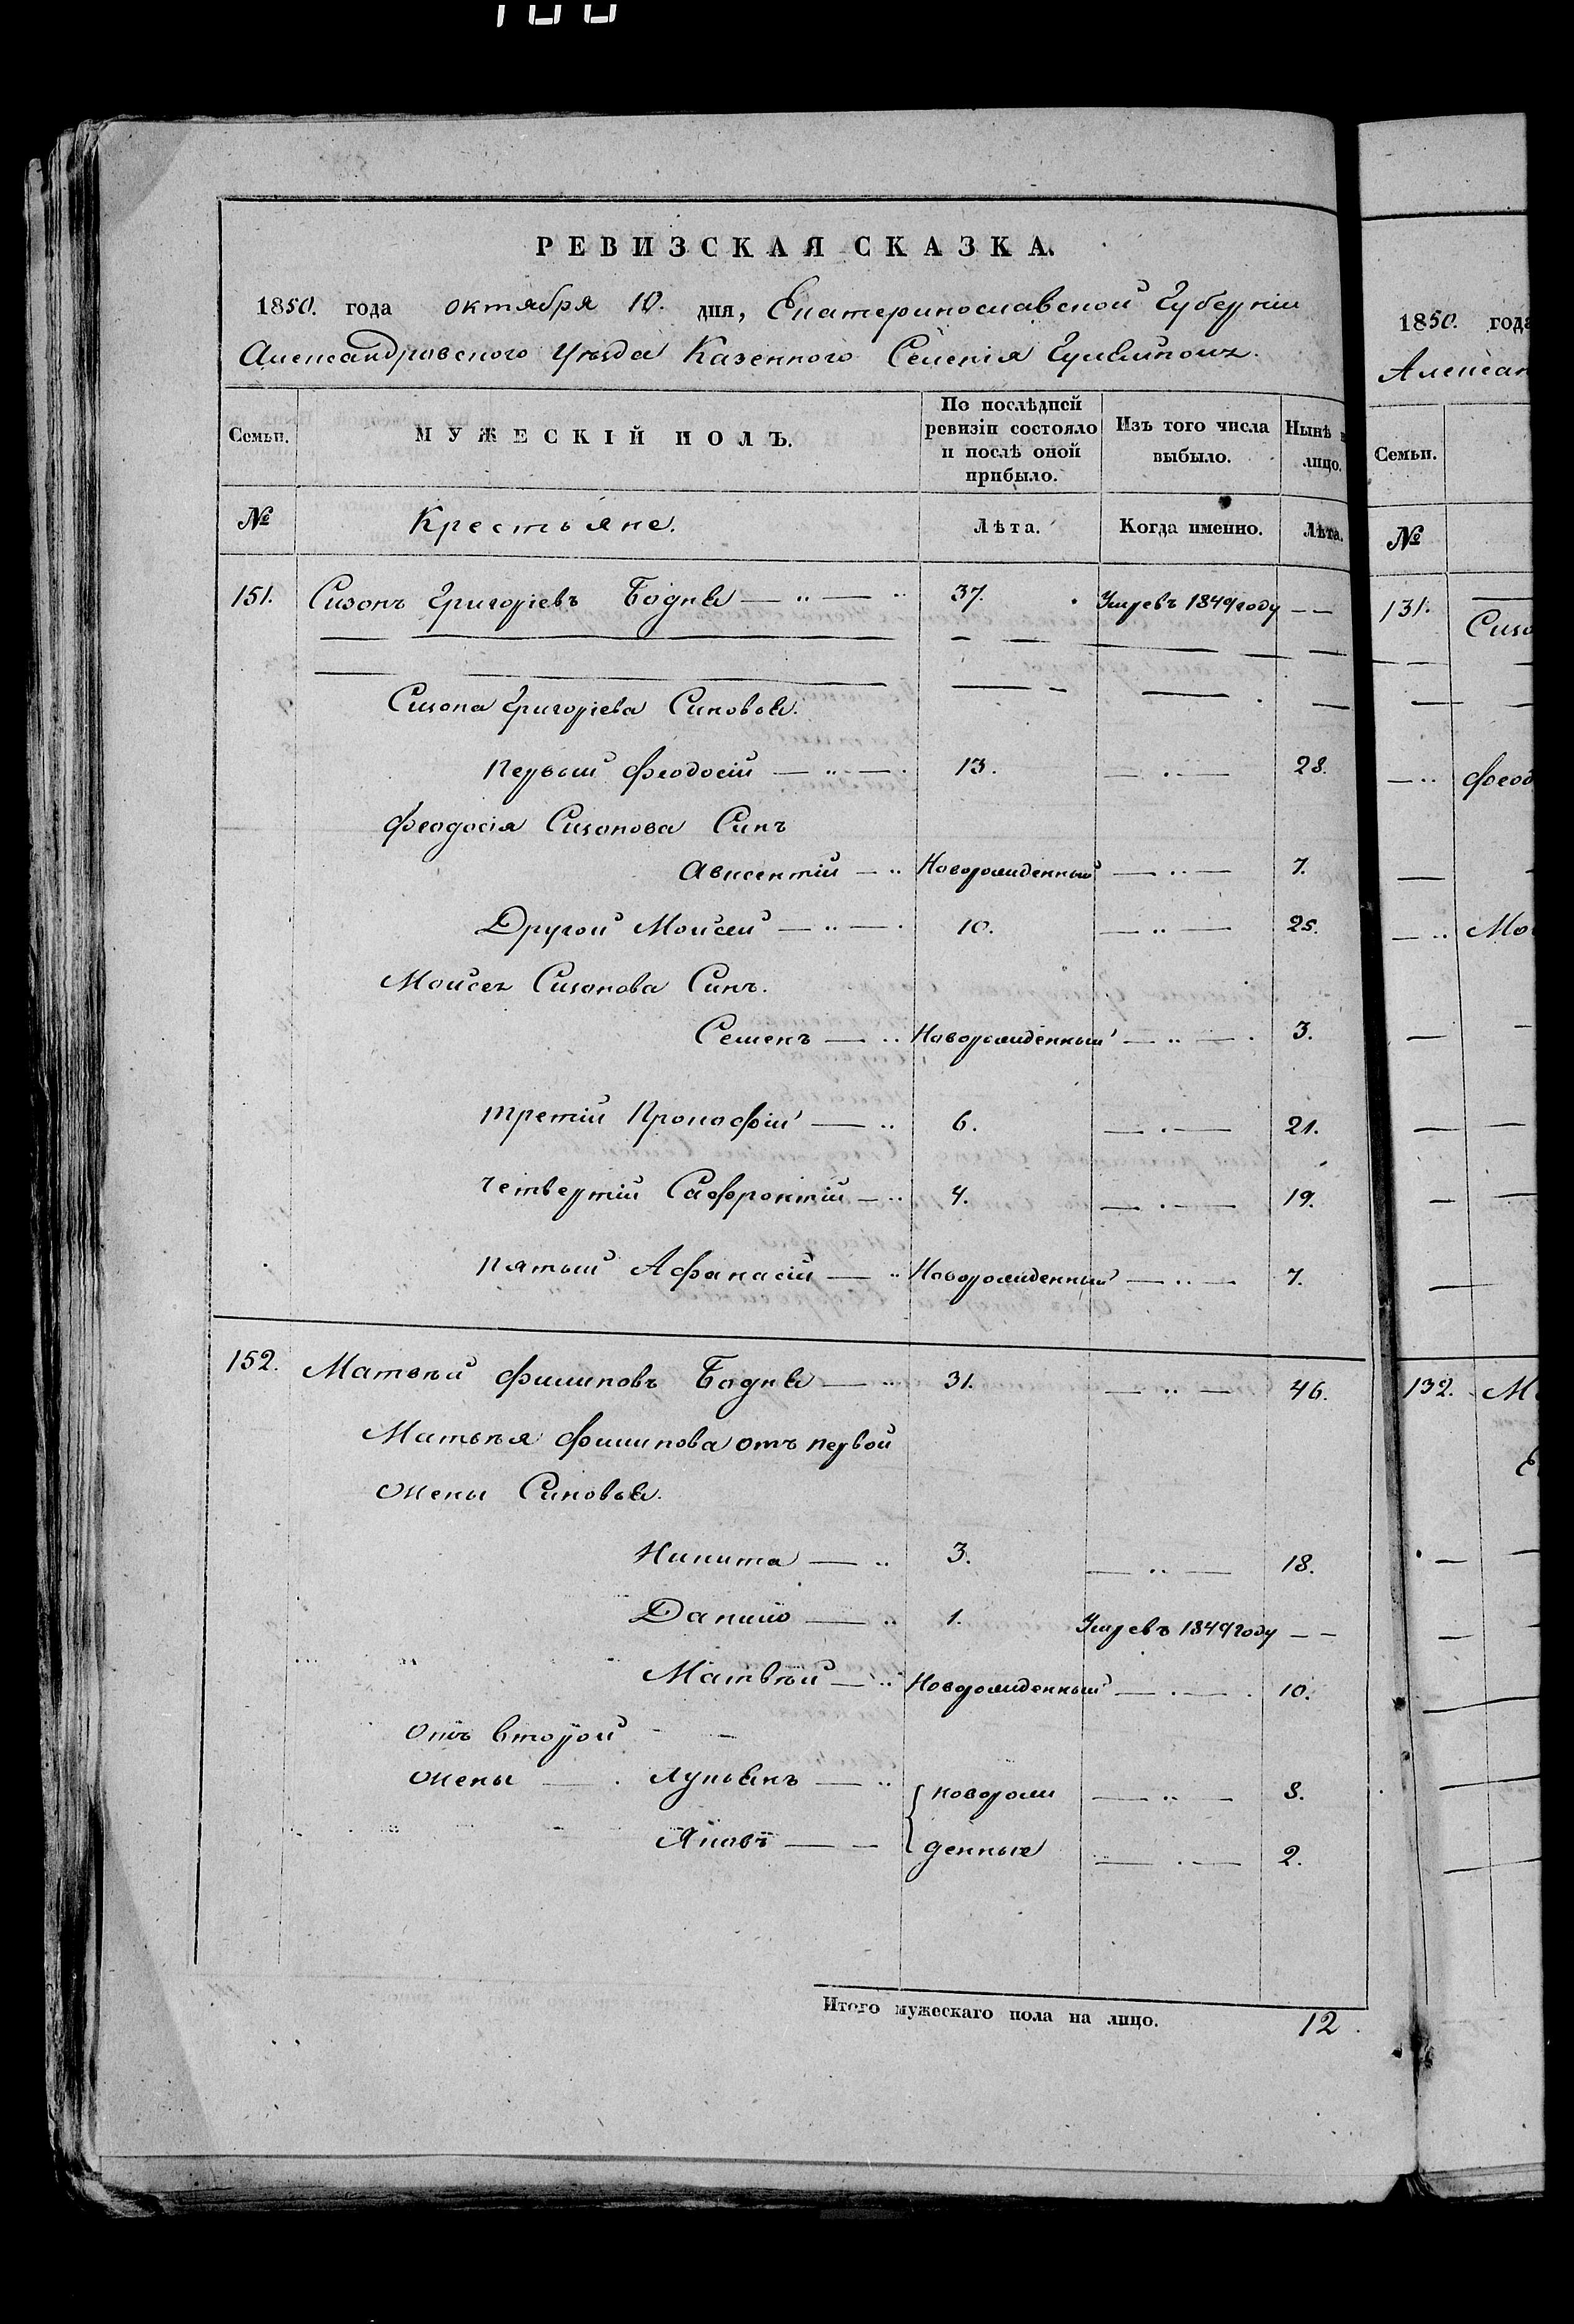 РЕВИЗСКАЯ СКАЗКА.
1850. года октября 10. дня, Екатеринославской Губерніи
Александровского Уѣзда Казенного Селенія
Семьи. МУЖЕСКІЙ ПОЛЪ. По послѣдней ревизіи состояло и послѣ оной прибыло. Изъ того числа выбыло. Нынѣ на лицо.
№ Крестьяне. Лѣта. Когда именно. Лѣта.
151. Сизонъ Григоріевъ 37. Умре въ 1849 году — —
Сизона Григоріева Синовья.
Первый Феодосій — „ — 13. — „ — 28.
Феодосія Сизонова Синъ
Авксентій — „ Новорожденный — „ — 7.
Другой Мойсей — „ — 10. — „ — 25.
Мойсея Сизонова Синъ.
Семенъ — „ Новорожденный — „ — 3.
Третій Прокофій — „ 6. — „ — 21.
Четвертій Сафронтій — „ 4. — „ — 19.
Пятый Афанасій — „ Новорожденный — „ — 7.
152. Матвѣй Филиповъ — „ 31. — „ — 46.
Матвѣя Филипова отъ первой
жены Синовья.
Никита — „ 3. — „ — 18.
Данило — „ 1. Умре въ 1849 году — —
Матвѣй — „ Новорожденный — „ — 10.
Отъ второй
жены — Лукьянъ — „ новорож — „ — 8.
Яковъ — — денные — „ — 2.
Итого мужескаго пола на лицо. 12
1850. года
Семьи.
№
131.
132.